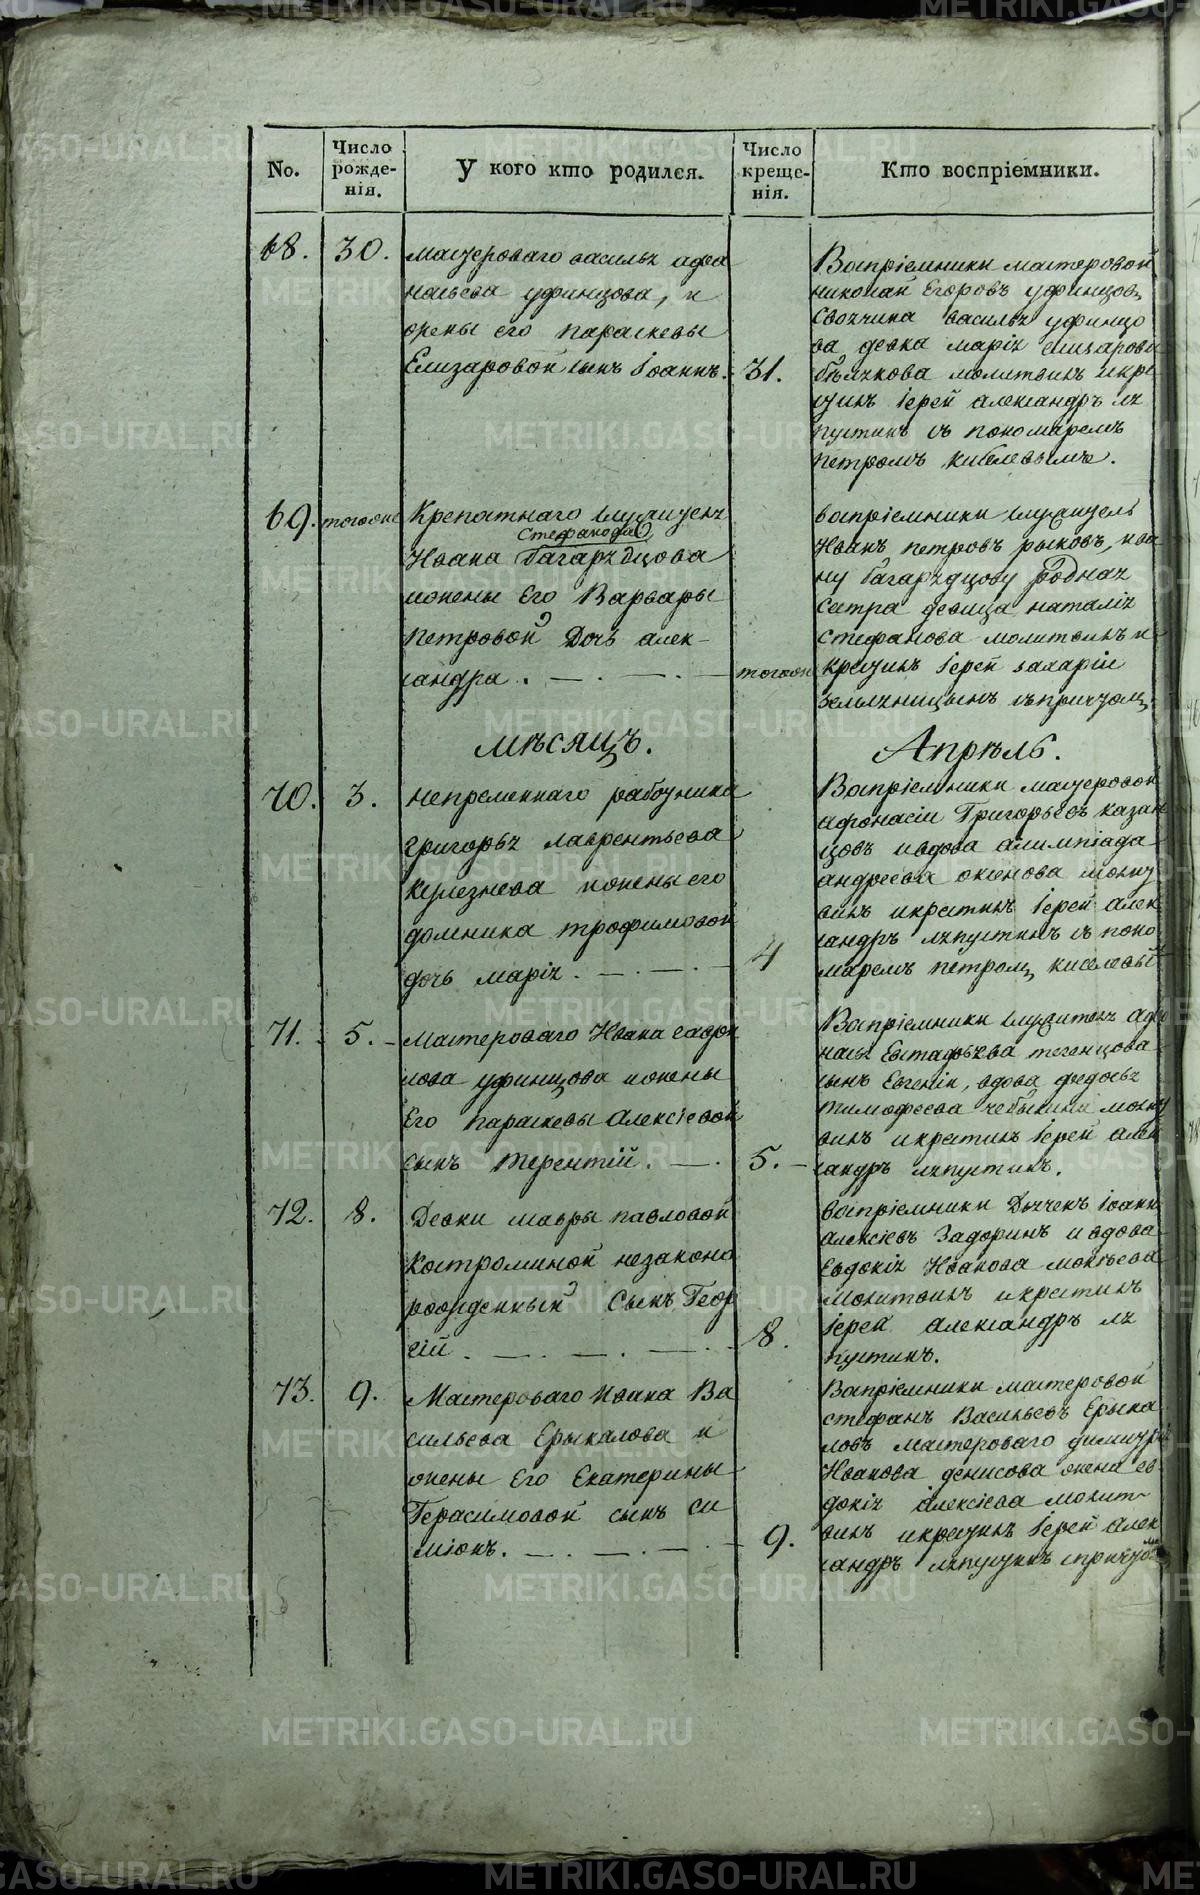 No.
Число рожде-нія.
У кого кто родился.
Число креще-нія.
Кто воспріемники.
68.
30.
Мастероваго василья афа
насьева уфинцова, и
жены его параскевы
Елизаровой сынъ Іоаннъ.
31.
Воспріемники мастеровой
николай Егоровъ уфинцовъ
василья уфинцо
ва девка марія елизарова
молитвилъ икре
стилъ іерей александръ ля
пустинъ съ пономаремъ
петромъ киселевымъ.
69.
тогоже
Крепостнаго служителя
Стефанова
Ивана Багарядцова
ижены Его Варвары
петровой Дочь алек-
сандра.
тогоже
воспріемники служитель
Иванъ петровъ рыковъ, ива
ну багарядцову родная
сестра девица наталія
стефанова молитвилъ и
крестилъ іерей захарій
земляницынъ съпричтомъ
мѣсяцъ.
Апрѣль.
70.
3.
непременнаго работника
григорья лаврентьева
ижены его
домника трофимовой
дочь марія.
4
Воспріемники мастеровой
афонасіи Григорьевъ казан
цовъ ивдова алимпіада
андреева оженова молит
вилъ икрестилъ іерей алек
сандръ ляпустинъ съ поно
маремъ петромъ киселевы
71.
5.
Мастероваго Ивана
уфинцова ижены
Его параскевы Алексіевой
сынъ терентій.
5.
Воспріемники служителя афо
насья Евстафьева тегенцова
сынъ Евгеній, вдова федосья
тимофеева чебыкина молит
вилъ икрестилъ іерей алек
сандръ ляпустинъ.
72.
8.
Девки мавры павловой
Костроминой незаконо
рожденный Сынъ Геор
гій
8.
воспріемники Дьячекъ іоаннъ
алексіевъ Задоринъ и вдова
Евдокія Иванова мокеева
молитвилъ икрестилъ
іерей александръ ля
пустинъ.
73.
9.
Мастероваго ивана Ва
сильева Ерыкалова и
жены Его Екатерины
Герасимовой сынъ си
міонъ.
9.
Воспріемники мастеровой
стефанъ Васильевъ Ерыка
ловъ мастероваго димитрія
Иванова денисова жена ев
докія алексіева молит
вилъ икрестилъ іерей алек
сандръ ляпустинъ спричтомъ
METRIKI.GASO-URAL.RU